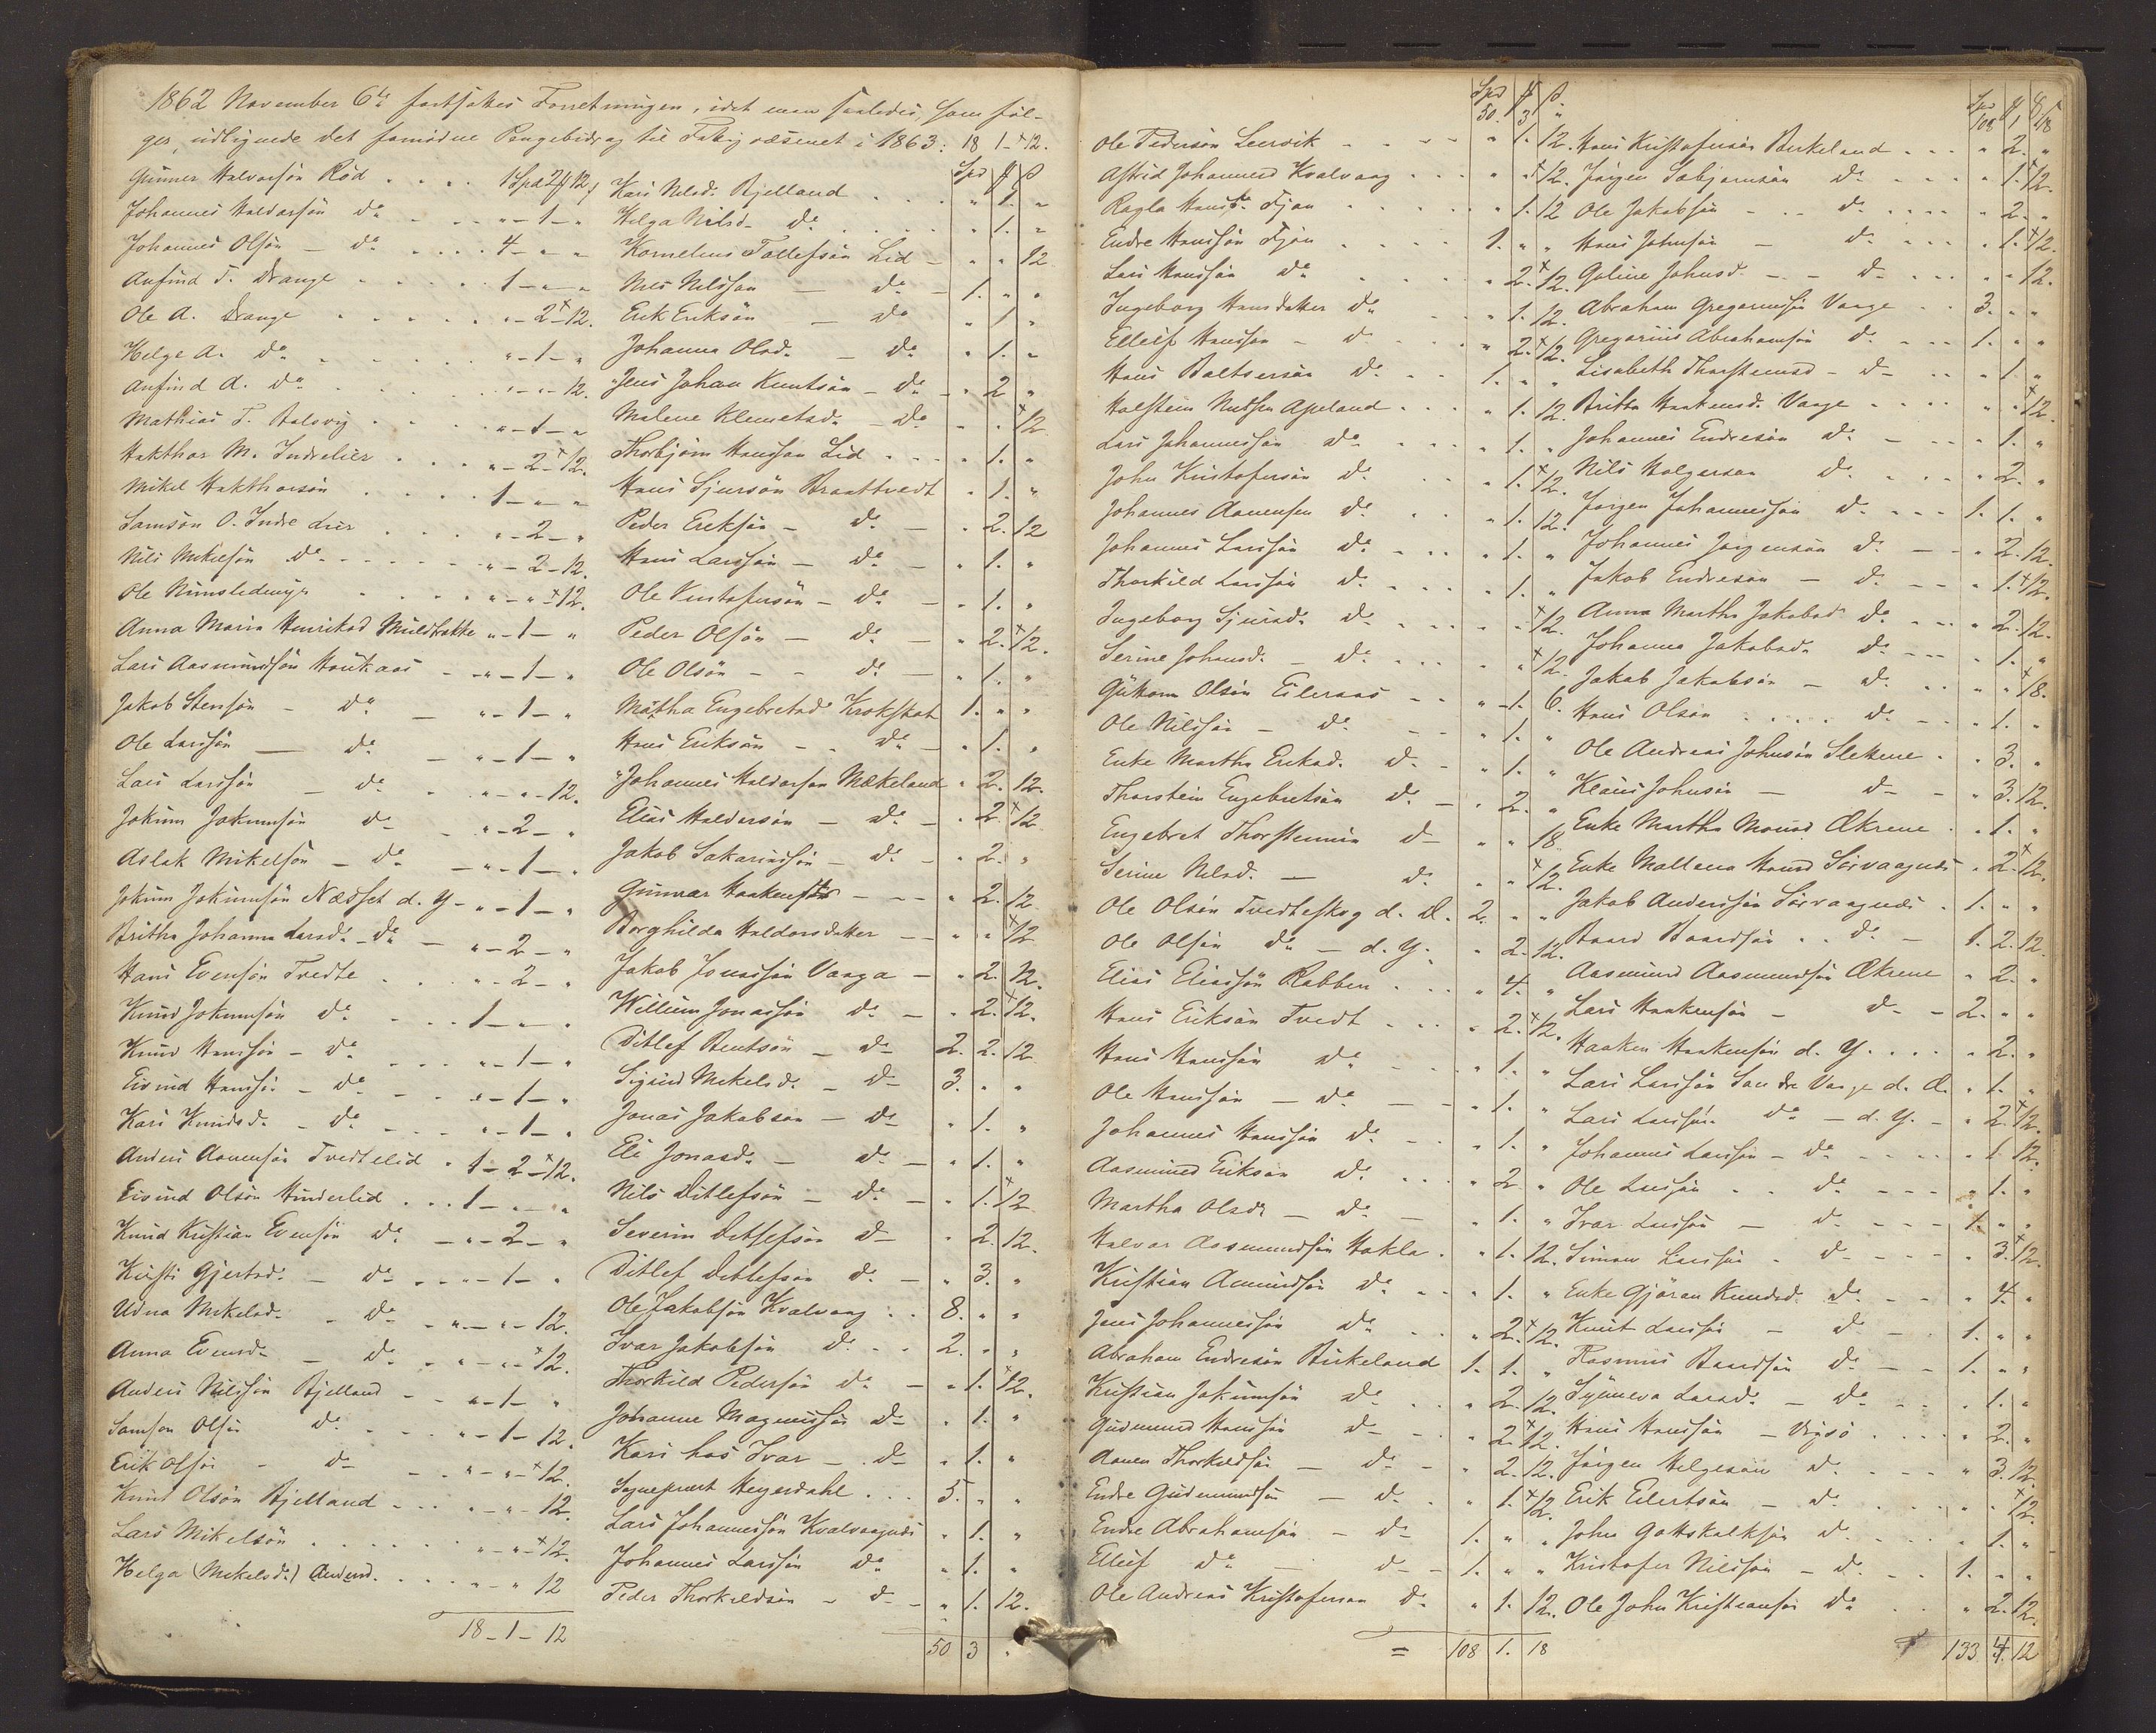 1862 November 6te fortsattes Forretningen, idet man saaledes, som föl-
ger, udlignede det fornödne Pengebidrag til Fattigvæsenet i 1863:
Gunner Halvorsön Röd . . . . 1 Spd 2 # 12 ß
Johannes Haldorsön do „ - 1 - „
Johannes Olsön - do . . . . 4 - „ - „
Anfind T. Drange . . . . . 1 - „ - „
Ole A. Drange . . . . . „ - 2 - 12.
Helge A. do . . . . . „ - 1 - „
Anfind A. do . . . . . „ - „ - 12.
Mathias T. Aalsvig . . . . „ - 1 - „
Hakthor M. Indrelier . . . „ - 2 - 12.
Mikel Hakthorsön . . . . 1 - „ - „
Samson O. Indre Lier . . . „ - 2 - „
Nils Mikelsön do . . . . „ - 2 - 12.
Ole . . . . „ - „ - 12.
Anna Maria Henriksd „ - 1 - „
Lars Aasmundsön Haukaas - „ - 1 - „
Jakob Stensön - do - „ - 1 - „
Ole Larsön - do - „ - 1 - „
Lars Larsön - do - „ - „ - 12.
Jokum Jokumsön do - „ - 2 - „
Aslak Mikelsön - do - „ - 1 - „
Jokum Jokumsön Næsset d. Y - „ - 1 - „
Britha Johanna Larsd. do - „ - 2 - „
Hans Evensön Tvedte . . „ - 2 - „
Knud Jokumsön do . . . 1 - „ - „
Knud Hansön - do . . . „ - 1 - „
Eivind Hansön - do - „ - 1 - „
Kari Knudsd. - do - „ - 1 - „
Anders Aanensön Tvedtelid . 1 - 2 - 12.
Eivind Olsön Hinderlid . . . 1 - „ - „
Knud Kristian Evensön do - „ - 2 - „
Kristi Gjertsd. - do - „ - 1 - „
Udna Mikelsd. - do - „ - „ - 12.
Anna Evensd. - do - „ - „ - 12.
Anders Nilsön Bjelland - „ - 1 - „
Samson Olsön do . . „ - 1 - 12.
Erik Olsön - do - „ - „ - 12.
Knut Olsön Bjelland - - „ - „ - 12.
Lars Mikelsön . . . . . „ - „ - 12.
Helga (Mikelsd.) Andersd. . . „ - „ 12
18 - 1 - 12
18 1 - 12.
Spd # ß
Kari Nilsd. Bjelland . . . „ 1. „
Helga Nilsd - do . . . „ 1. „
Kornelius Tollefsön Lid - „ „ 12
Nils Nilsson - do - 1. „ „
Erik Eriksön - do „ 1 „
Johanna Olsd. - do „ 1. „
Jens Johan Knutsön - do - „ 2 „
Malene Klemetsd. - do - „ „ 12
Thorbjörn Hansson Lid . . . „ 1. „
Hans Sjursön Braattvedt „ 1. „
Peder Eriksön - do - „ 2. 12
Hans Larssön - do - „ 1. „
Ole Kristofersön - do - „ 1. „
Peder Olsön - do - „ 2. 12.
Ole Olsön - - do - „ 1. „
Martha Engebretsd. Krokskat 1. „ „
Hans Eriksön - - do - „ 1. „
Johannes Haldorson Mækeland „ 2. 12.
Elias Haldorsön - do - „ 2. 12
Jakob Sakariassön - do - „ 2. „
Gunnar Haakensön - - - „ 2. 12
Borghilda Haldorsdatter - - „ „ 12
Jakob Jonassön Vaaga - „ 2. 12.
Willum Jonassön do - „ 2. 12.
Ditlef Bentsön - do - 2. 2. 12
Sigrid Mikelsd. - do - 3. „ „
Jonas Jakobson - do - „ 1. „
Eli Jonasd. - do - „ 1. „
Nils Ditlefsön - do - „ 1. 12
Severin Ditlefsön do - „ 2. 12.
Ditlef Ditlefsön do - „ 3. „
Ole Jakobsön Kvalvaag . . 8. „ „
Ivar Jakobsön do - - 2. „ „
Thorkild Pedersön do - „ 1. 12.
Johanne Magnussön do - „ 1. „
Kari hos Ivar - do - „ 1. „
Sogneprest Heyerdahl . . . 5. „ „
Lars Johannessön Kvalvaagnæs „ 1. „
Johannes Larssön do „ 1. „
Peder Thorkildsön - do - „ 1. 12.
50 3 „
Spd # ß
50. 3 „
Ole Pedersön Leervik - - - „ 1. 12.
Astrid Johannesd Kvalvaag . . . „ „ 12.
Ragla Hansd. Tjon . . . „ 1. 12
Endre Hanssön Tjön . . . 1. „ „
Lars Hanssön do . . . „ 2. 12.
Ingeborg Hansdatter do . . „ 1. 12.
Ellef Hansson - do . . . „ 2. 12.
Hans Baltsersön do . . . 1. „ „
Halstein Nutsen Apeland . . . „ 1. 12
Lars Johannesson do . . . „ 1. „
John Kristofersön do . . . „ 1. 12.
Johannes Aanensen do . . . „ 1. 12.
Johannes Larssön do . . . „ 1. „
Thorkild Larssön do . . . „ 1. „
Ingeborg Sjursd. do . . . „ „ 12.
Serine Johansd. - do . . . „ „ 12.
Guttorm Olsön Eileraas - - „ 1. 6.
Ole Nilssön - do - - „ 1. „
Enke Martha Eriksd. do - „ 1. „
Thorstein Engebretsön do - „ 2. „
Engebret Thorsteinsön do - „ „ 18
Serine Nilsd. - do - „ „ 12.
Ole Olsön Tvedteskog d. Æ. 2. „ „
Ole Olsön do - d. Y. „ 2. 12.
Elias Eliassön Rabben . . . „ 4. „
Hans Eriksön Tvedt . . . „ 2. 12.
Hans Hanssön do . . . „ 1. „
Ole Hanssön - do - - „ 1. „
Johannes Hanssön do - „ 1. „
Aasmund Erikson do . . „ 2 „
Martha Olsdr - do - „ 1. „
Halvor Aasmundsön Hakla . „ 1. 12.
Kristian Amundsön do . . „ 1. „
Jens Johannessön do . . „ 2. 12.
Abraham Endresön Birkeland 1. 1. „
Kristian Jokumsön do . . „ 2. 12.
Gudmund Hanssön do - „ 2. 12.
Aanen Thorkildsön - do - „ 2. 12.
Endre Gudmundsön - do . „ 1. 12.
Endre Abrahamsön - do - 1. „ „
Ellef do - do - 1. „ „
Ole Andreas Kristoferson do . „ 1. 12.
= 108 1. 18
Spd # ß
108 1 18
Hans Kristofersön Birkeland . . . „ 2. „
Jörgen Sæbjörnsön do - - - „ 1. 12.
Ole Jakobsön - - do . . . „ 2. „
Hans Johnsön - do . . . „ 1. 12.
Goline Johnsd. - - do - „ „ 12.
Abraham Gregoriussön Vaage . . 3. „ „
Gregorius Abrahamsön do - - 1. „ „
Lisabeth Thorsteinsd - do - - „ 1 „
Britha Haakensd. Vaage . . . . „ „ 12.
Johannes Endresön do - - „ 1. „
Nils Holgersen do . . . „ 2. „
Jörgen Johannessön do - - - 1. 1. „
Johannes Jörgensön do - - „ 2. 12.
Jakob Endresön - do - - „ 1. 12.
Anna Martha Jakobsd do - - „ 2. 12.
Johanna Jakobsd. do - - - „ 1. „
Jakob Jakobsön - do . . „ „ 18.
Hans Olsön . . . . do - - „ 1. „
Ole Andreas Johnsön Slekene . „ 3. „
Klaus Johnsön - do - „ 3. 12.
Enke Martha Monsd Ækrene . „ 1. „
Enke Mallena Hansd Sörvaagnæs . 2. 12.
Jakob Anderssön Sörvaagnæs . 1. „ „
Baard Baardsön . . do - 1. 2. 12
Aasmund Aasmundsön Ækrene „ 2. „
Lars Haakensön - do - 2. „ „
Haaken Haakensön d. Y. . . . „ 2. „
Lars Larssön Söndre Vaage d. Æ. „ 1. „
Lars Larssön do - d. Y. - „ 2. 12.
Johannes Larssön - do . . . „ 1. 12.
Ole Larssön . . do - - - „ 1. „
Ivar Larssön - do - - - 1. „ „
Simon Larssön . do - - - „ 3. 12.
Enke Gjöran Knudsd. do - - „ 4. „
Knut Larssön - do - 1. „ „
Rasmus Baardsön do - - 1. „ „
Synneva Larsd. - do . . „ 1. „
Hans Hanssön - Vigsö . . . „ 2. „
Jörgen Helgesön do - - - „ 3. 12.
Erik Eilertsön - do . . . „ „ 12.
John Gotskalksön do . . . „ 1. „
Kristofer Nilssön - do - - 1. „ „
Ole John Kristiansön do . . „ 2. 12.
133 4. 12